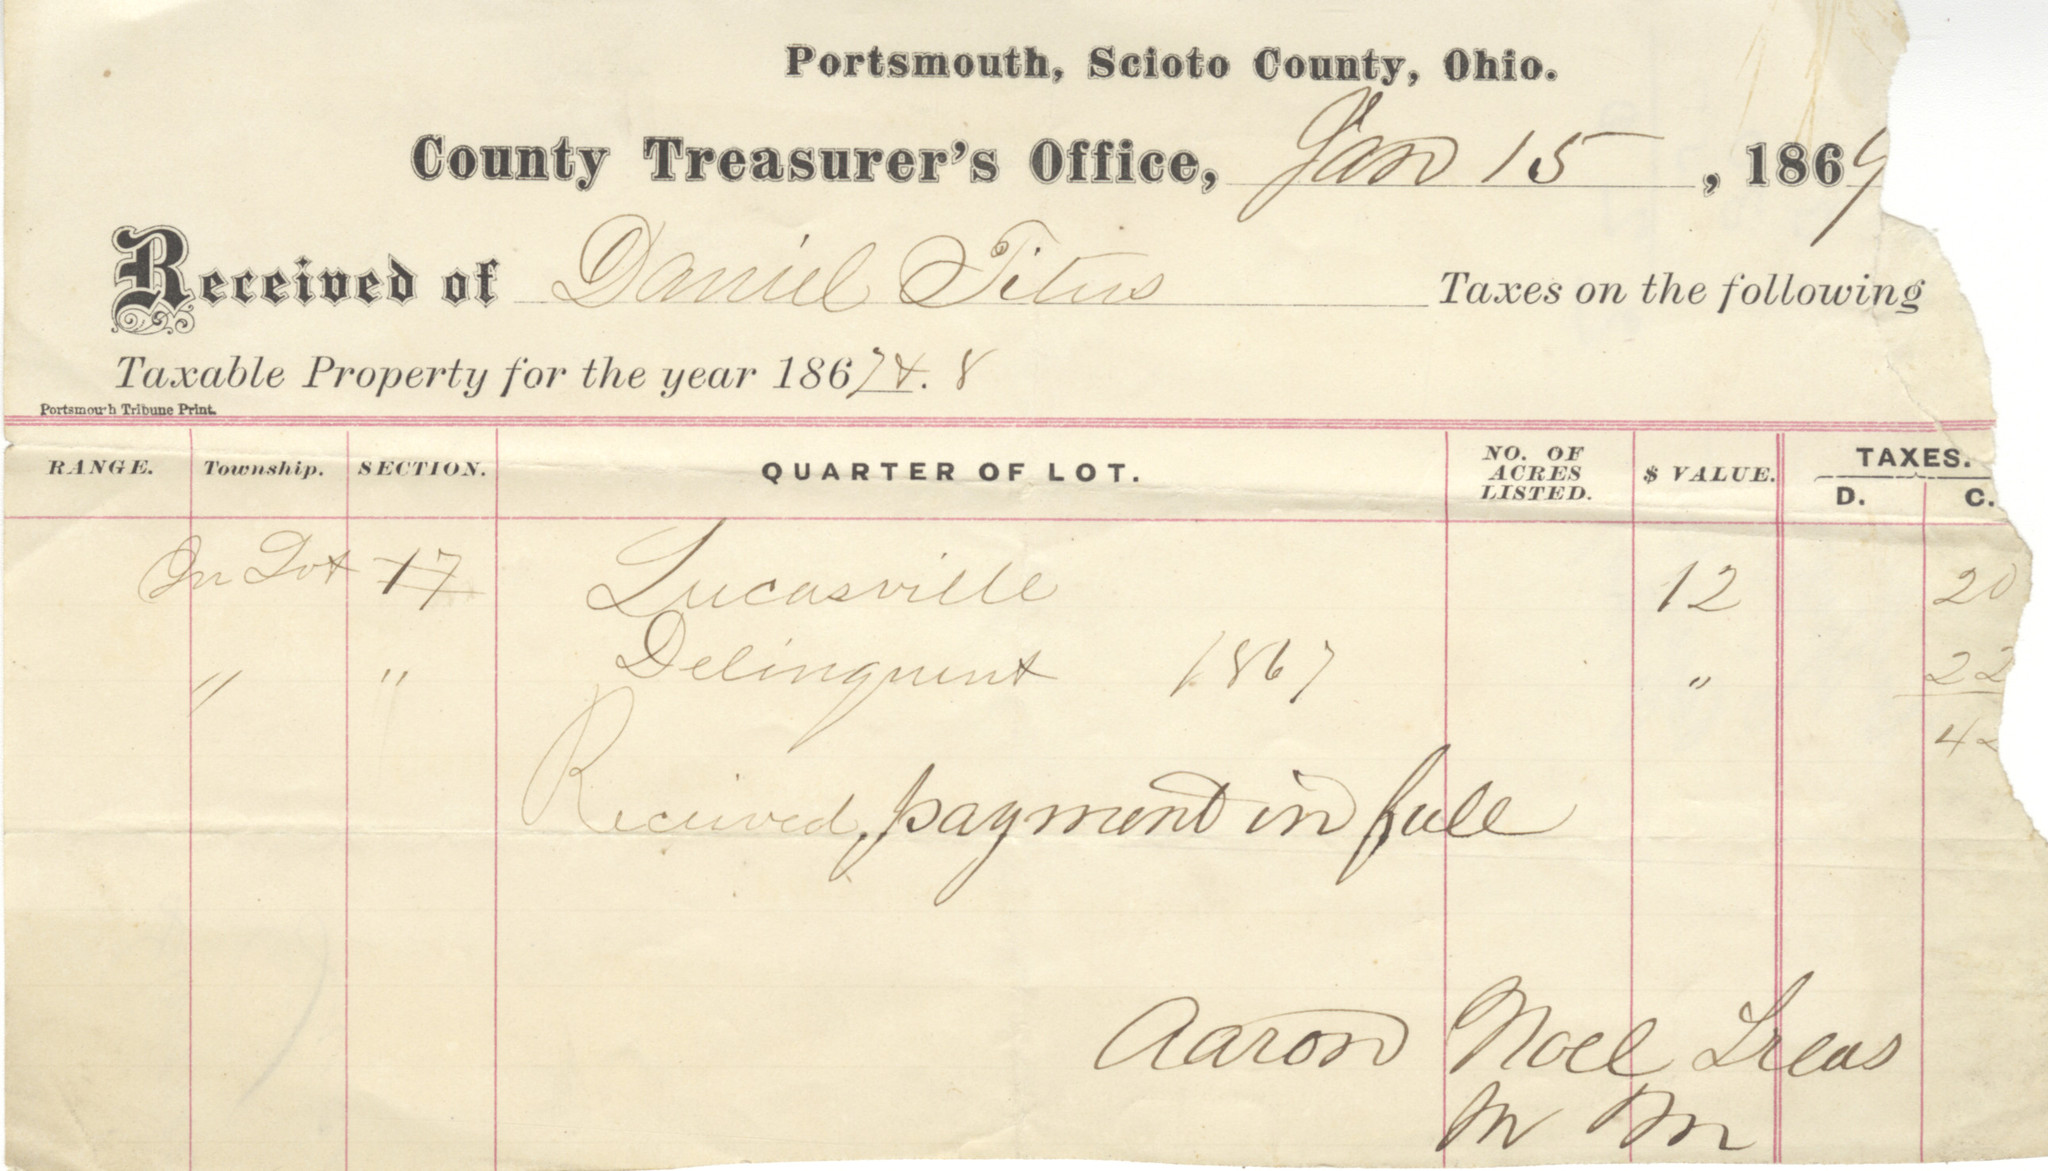 Portsmouth, Scioto County, Ohio.
County Treasurer's Office, Jan 15, 1869
Received of Daniel Titus Taxes on the following
Taxable Property for the year 1867 & 8
Portsmouth Tribune Print.
RANGE. Township. SECTION. QUARTER OF LOT. NO. OF ACRES LISTED. $ VALUE. TAXES.
D. C.
In Lot 17 Lucasville 12 20
" " Delinquent 1867 " 22
42
Received payment in full
Aaron Noel Treas